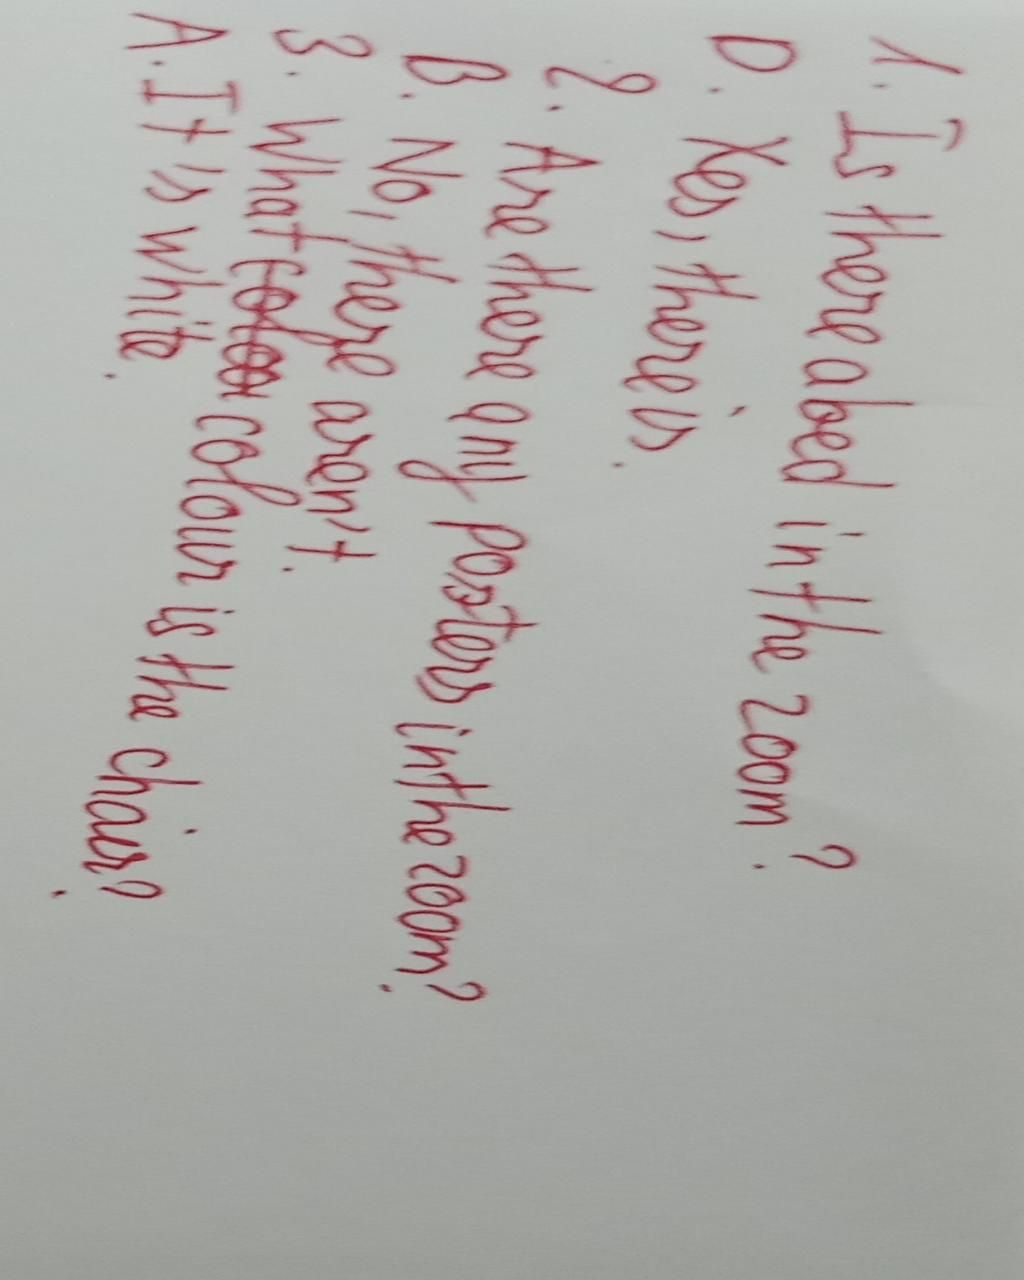 1. Is there a bed in the room?
D. Yes, there is.
2. Are there any posters in the room?
B. No, there aren't.
3. What colour is the chair?
A. It is white.